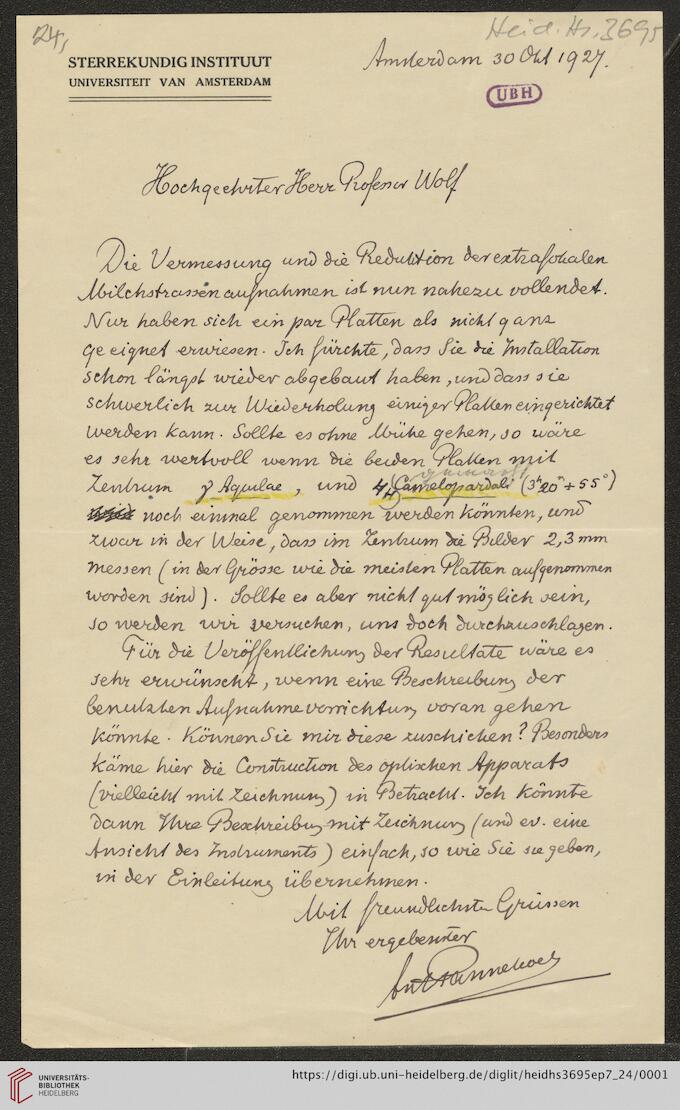 24,
Heid. Hs. 3695
STERREKUNDIG INSTITUUT
UNIVERSITEIT VAN AMSTERDAM
Amsterdam 30 Okt 1927.
UBH
Hochgeehrter Herr Professor Wolf
Die Vermessung und die Reduktion der extrafokalen
Milchstrassenaufnahmen ist nun nahezu vollendet.
Nur haben sich ein par Platten als nicht ganz
geeignet erwiesen. Ich fürchte, dass Sie die Installation
schon längst wieder abgebaut haben, und dass sie
schwerlich zur Wiederholung einiger Platten eingerichtet
werden kann. Sollte es ohne Mühe gehen, so wäre
es sehr wertvoll wenn die beiden Platten mit
gemacht
Zentrum γ Aquilae, und 4H Camelopardali (3h20m+55°)
noch einmal genommen werden könnten, und
zwar in der Weise, dass im Zentrum die Bilder 2,3 mm
messen (in der Grösse wie die meisten Platten aufgenommen
worden sind). Sollte es aber nicht gut möglich sein,
so werden wir versuchen, uns doch durchzuschlagen.
Für die Veröffentlichung der Resultate wäre es
sehr erwünscht, wenn eine Beschreibung der
benutzten Aufnahmevorrichtung voran gehen
könnte. Können Sie mir diese zuschicken? Besonders
käme hier die Construction des optischen Apparats
(vielleicht mit Zeichnung) in Betracht. Ich könnte
dann Ihre Beschreibung mit Zeichnung (und ev. eine
Ansicht des Instruments) einfach, so wie Sie sie geben,
in der Einleitung übernehmen.
Mit freundlichsten Grüssen
Ihr ergebenster
Ant Pannekoek
UNIVERSITÄTS-
BIBLIOTHEK
HEIDELBERG
https://digi.ub.uni-heidelberg.de/diglit/heidhs3695ep7_24/0001